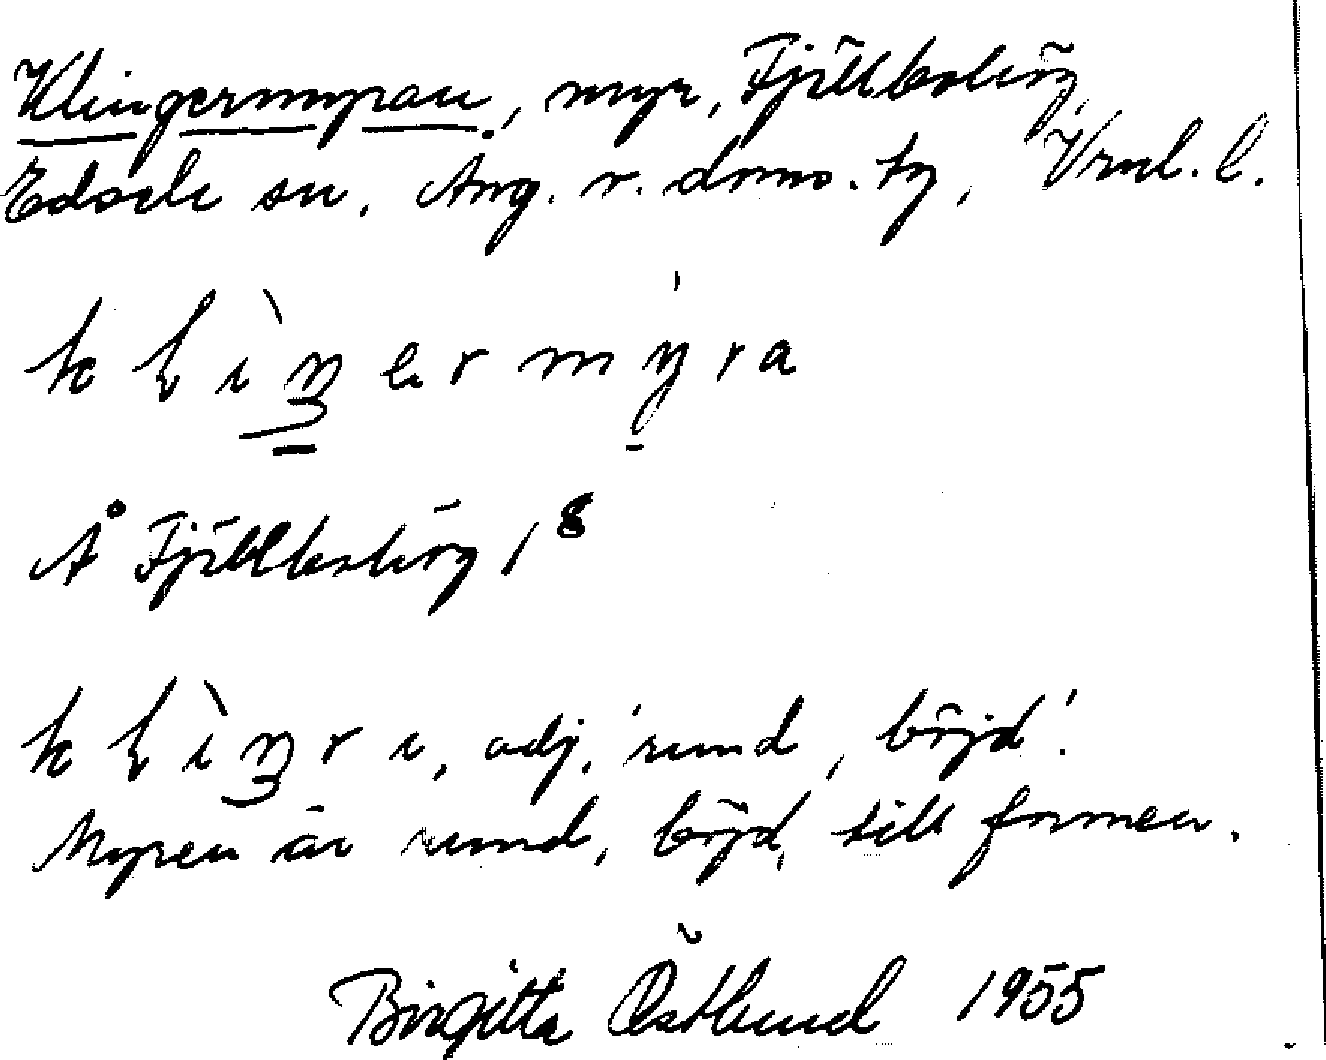 Klingermyran, myr, Fjällbohög,
Edsele sn. Ång. v. doms. tg, Vrnl. l.
Å Fjällbohög 1⁸
adj. 'rund, böjd'.
Myren är rund, böjd, till formen.
Birgitta Östlund 1955